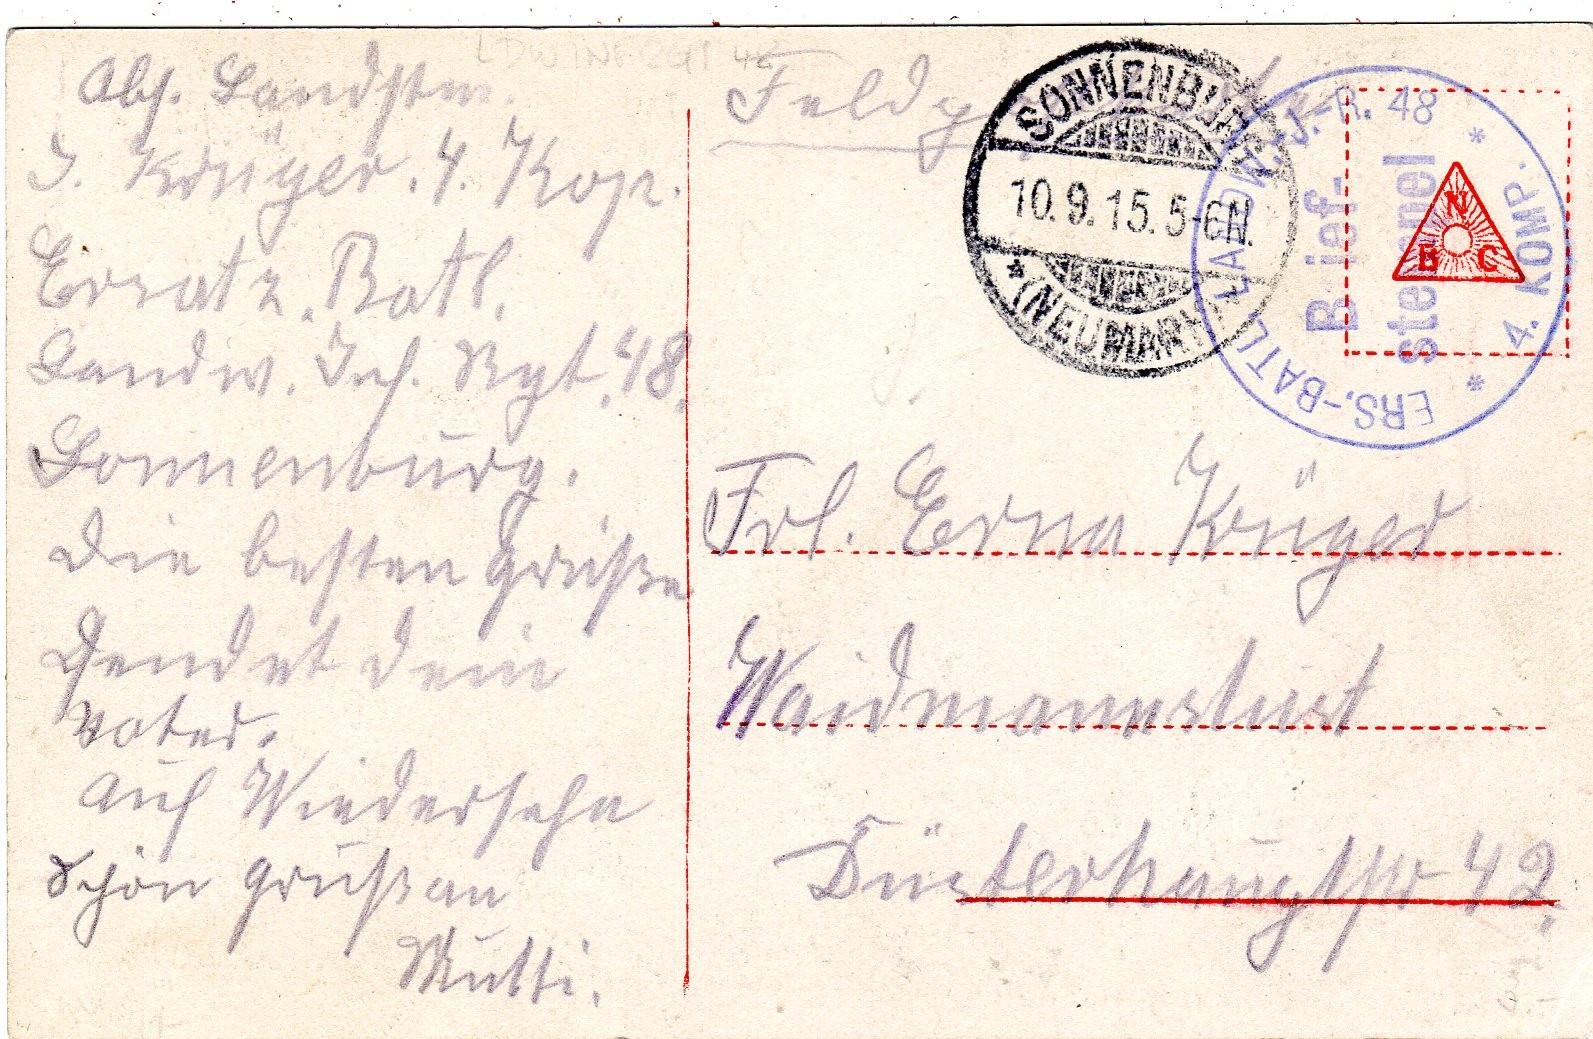 Abs. Landstm.
J. Krüger. 4. Kop.
Ersatz. Batl.
Landw. Inf. Rgt. 48.
Sonnenburg.
Die besten Grüße
sendet dein
Vater.
Auf Wiedersehn
Schön Gruß an
Mutti.
Feldp
SONNENBURG
10.9.15.5-6N.
* (NEUMARK)
ERS.-BATL. LANDW.-J.-R. 48
* 4. KOMP. *
Brief-
stempel
N
B C
Frl. Erna Krüger
Waidmannslust
Düsterhauptstr 42.